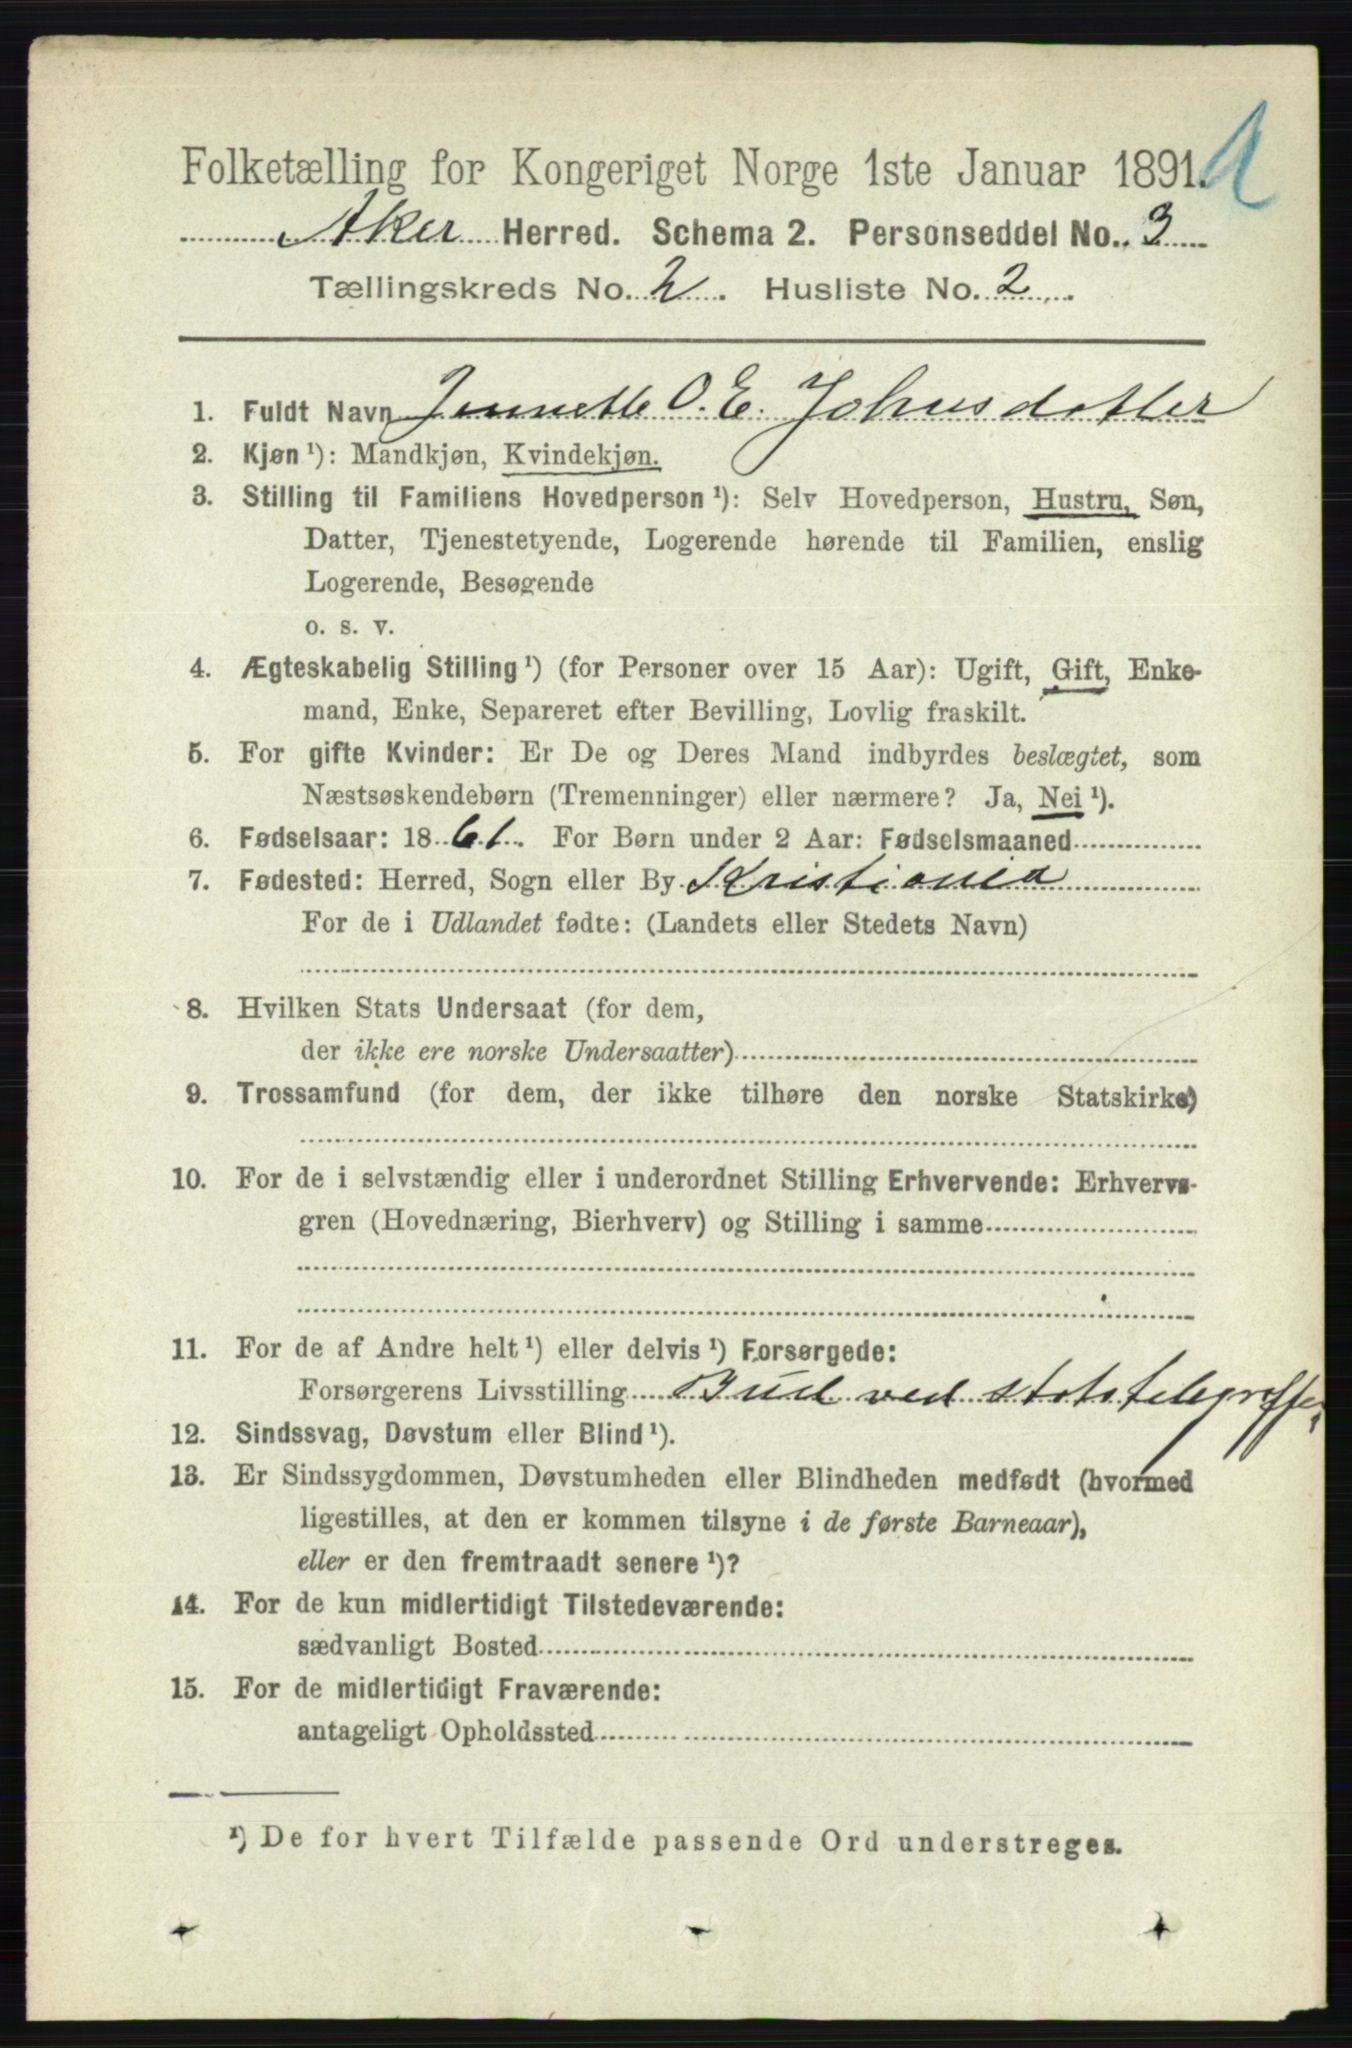 Folketælling for Kongeriget Norge 1ste Januar 1891.
Aker Herred. Schema 2. Personseddel No. 3
Tællingskreds No. 2. Husliste No. 2.
1. Fuldt Navn Jennette O. E. Johnsdatter
2. Kjøn¹): Mandkjøn, Kvindekjøn.
3. Stilling til Familiens Hovedperson¹): Selv Hovedperson, Hustru, Søn,
Datter, Tjenestetyende, Logerende hørende til Familien, enslig
Logerende, Besøgende
o. s. v.
4. Ægteskabelig Stilling¹) (for Personer over 15 Aar): Ugift, Gift, Enke-
mand, Enke, Separeret efter Bevilling, Lovlig fraskilt.
5. For gifte Kvinder: Er De og Deres Mand indbyrdes beslægtet, som
Næstsøskendebørn (Tremenninger) eller nærmere? Ja, Nei¹).
6. Fødselsaar: 1861. For Børn under 2 Aar: Fødselsmaaned
7. Fødested: Herred, Sogn eller By Kristiania
For de i Udlandet fødte: (Landets eller Stedets Navn)
8. Hvilken Stats Undersaat (for dem,
der ikke ere norske Undersaatter)
9. Trossamfund (for dem, der ikke tilhøre den norske Statskirke)
10. For de i selvstændig eller i underordnet Stilling Erhvervende: Erhvervs-
gren (Hovednæring, Bierhverv) og Stilling i samme
11. For de af Andre helt¹) eller delvis¹) Forsørgede:
Forsørgerens Livsstilling Bud ved statstelegraffen
12. Sindssvag, Døvstum eller Blind¹).
13. Er Sindssygdommen, Døvstumheden eller Blindheden medfødt (hvormed
ligestilles, at den er kommen tilsyne i de første Barneaar),
eller er den fremtraadt senere¹)?
14. For de kun midlertidigt Tilstedeværende:
sædvanligt Bosted
15. For de midlertidigt Fraværende:
antageligt Opholdssted
¹) De for hvert Tilfælde passende Ord understreges.